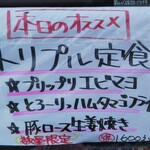 本日のオススメ
トリプル定食
★プリップリエビマヨ
★とろーりハムタマゴフライ
★豚ロース生姜焼き
数量限定
1,600